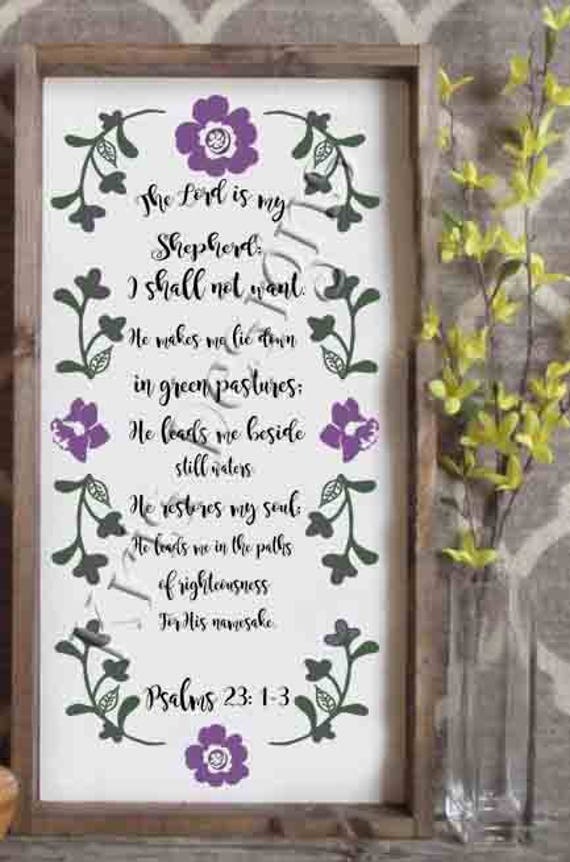 The Lord is my
Shepherd;
I shall not want.
He makes me lie down
in green pastures;
He leads me beside
still waters.
He restores my soul;
He leads me in the paths
of righteousness
For His namesake.
Psalms 23: 1-3